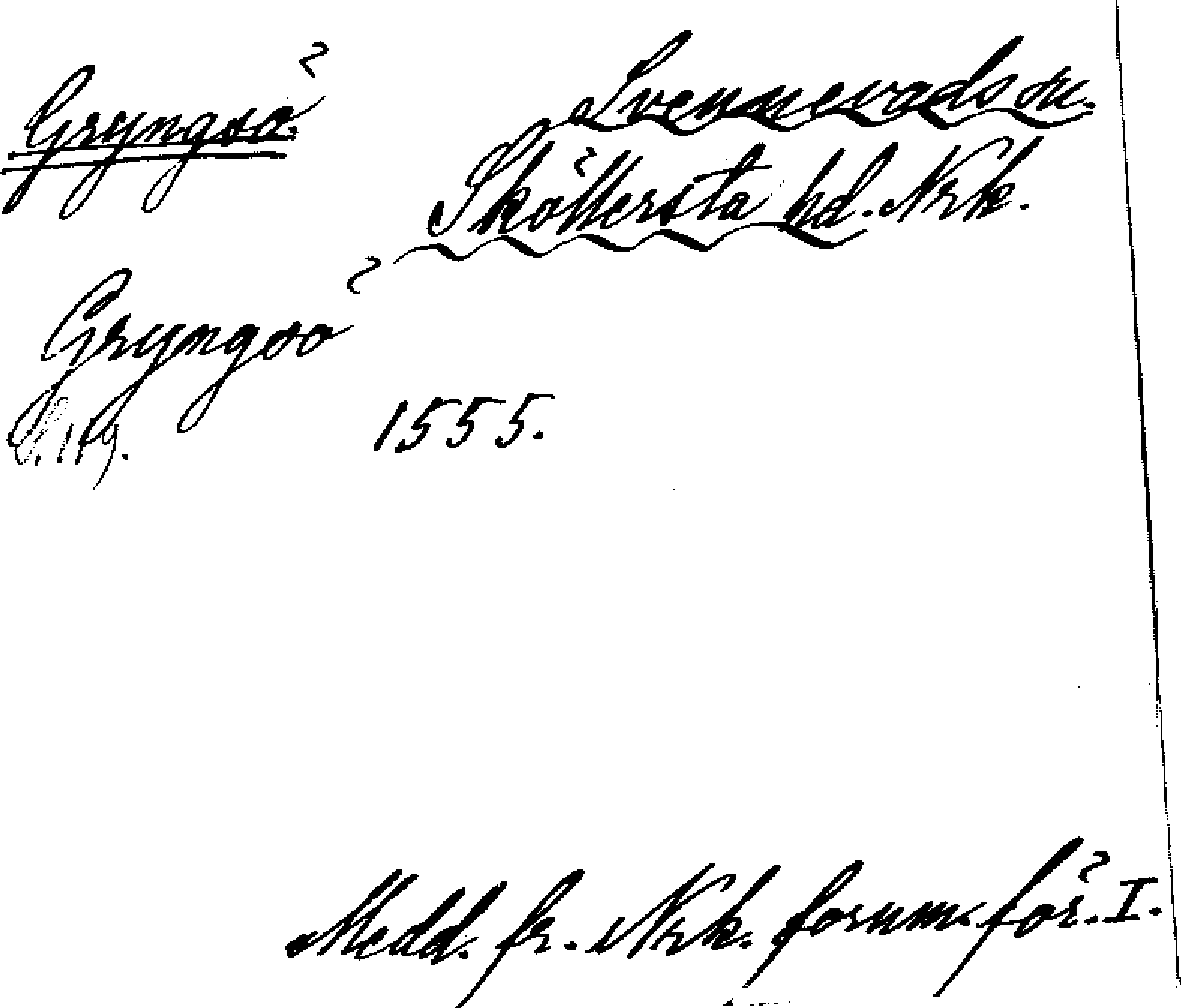 Gryngsö. Svennevads sn.
Sköllersta hd. Nrk.
Gryngsö
S. 119. 1555.
Medd. fr. Nrk. fornm.för. I.